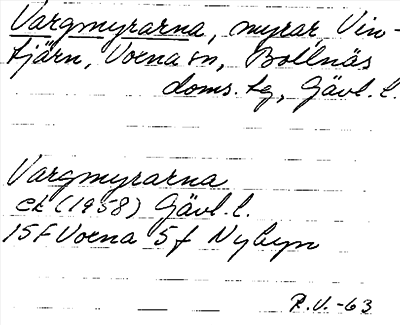 Vargmyrarna, myrar, Vin-
tjärn, Voxna sn, Bollnäs
doms. tg, Gävl. l.
Vargmyrarna
ek (1958) Gävl. l.
15F Voxna 5f Nybyn
R.V.-63